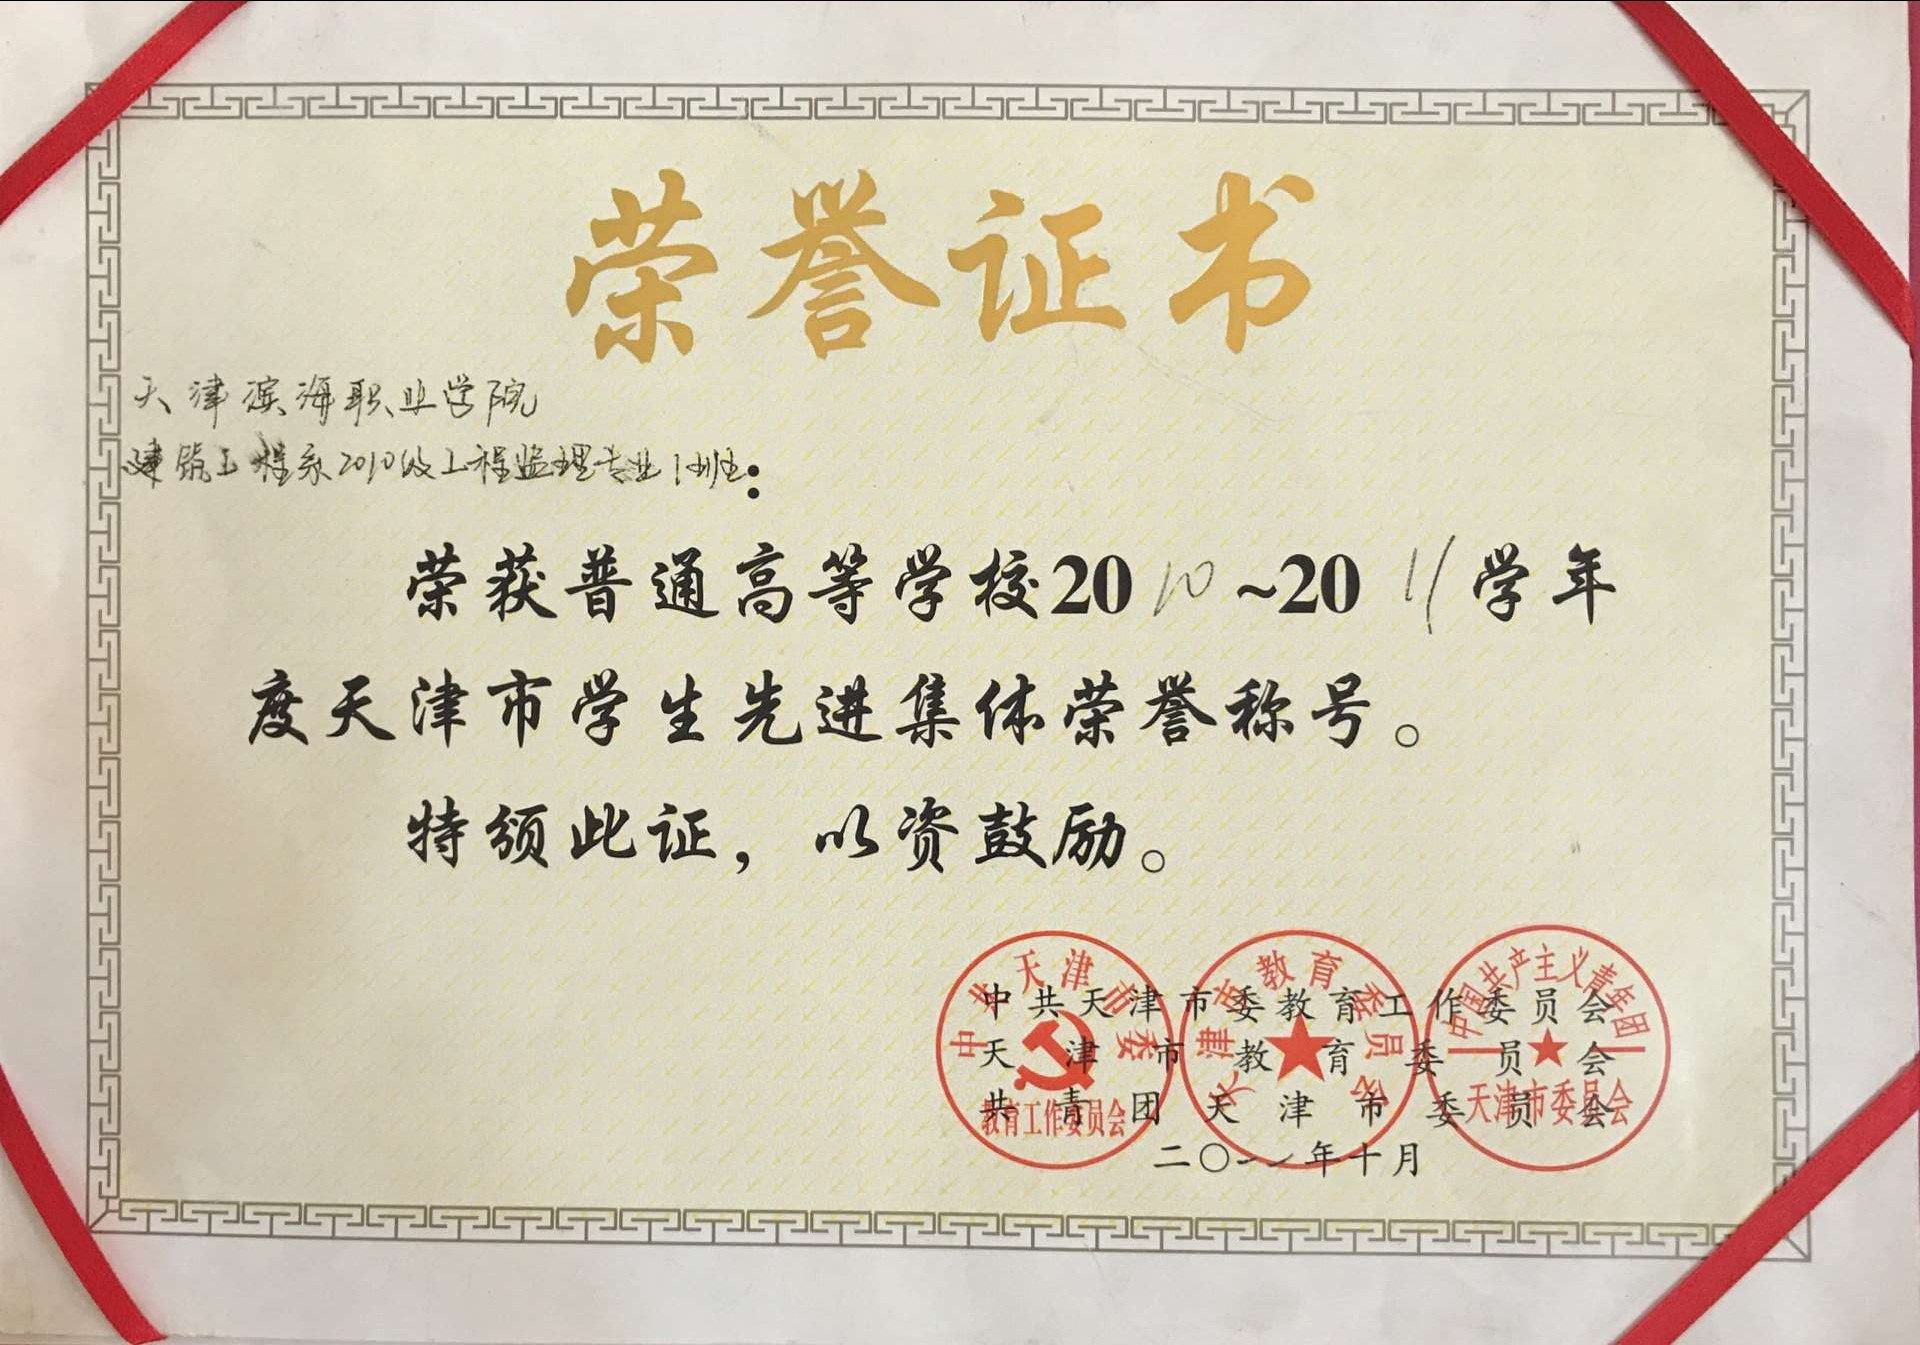 荣誉证书
天津滨海职业学院
建筑工程系2010级工程监理专业1班：
荣获普通高等学校2010~2011学年
度天津市学生先进集体荣誉称号。
特颁此证，以资鼓励。
中共天津市委教育工作委员会
天津市教育委员会
共青团天津市委员会
二〇一一年十月
中共天津市委
教育工作委员会
天津市教育委员会
中国共产主义青年团
天津市委员会